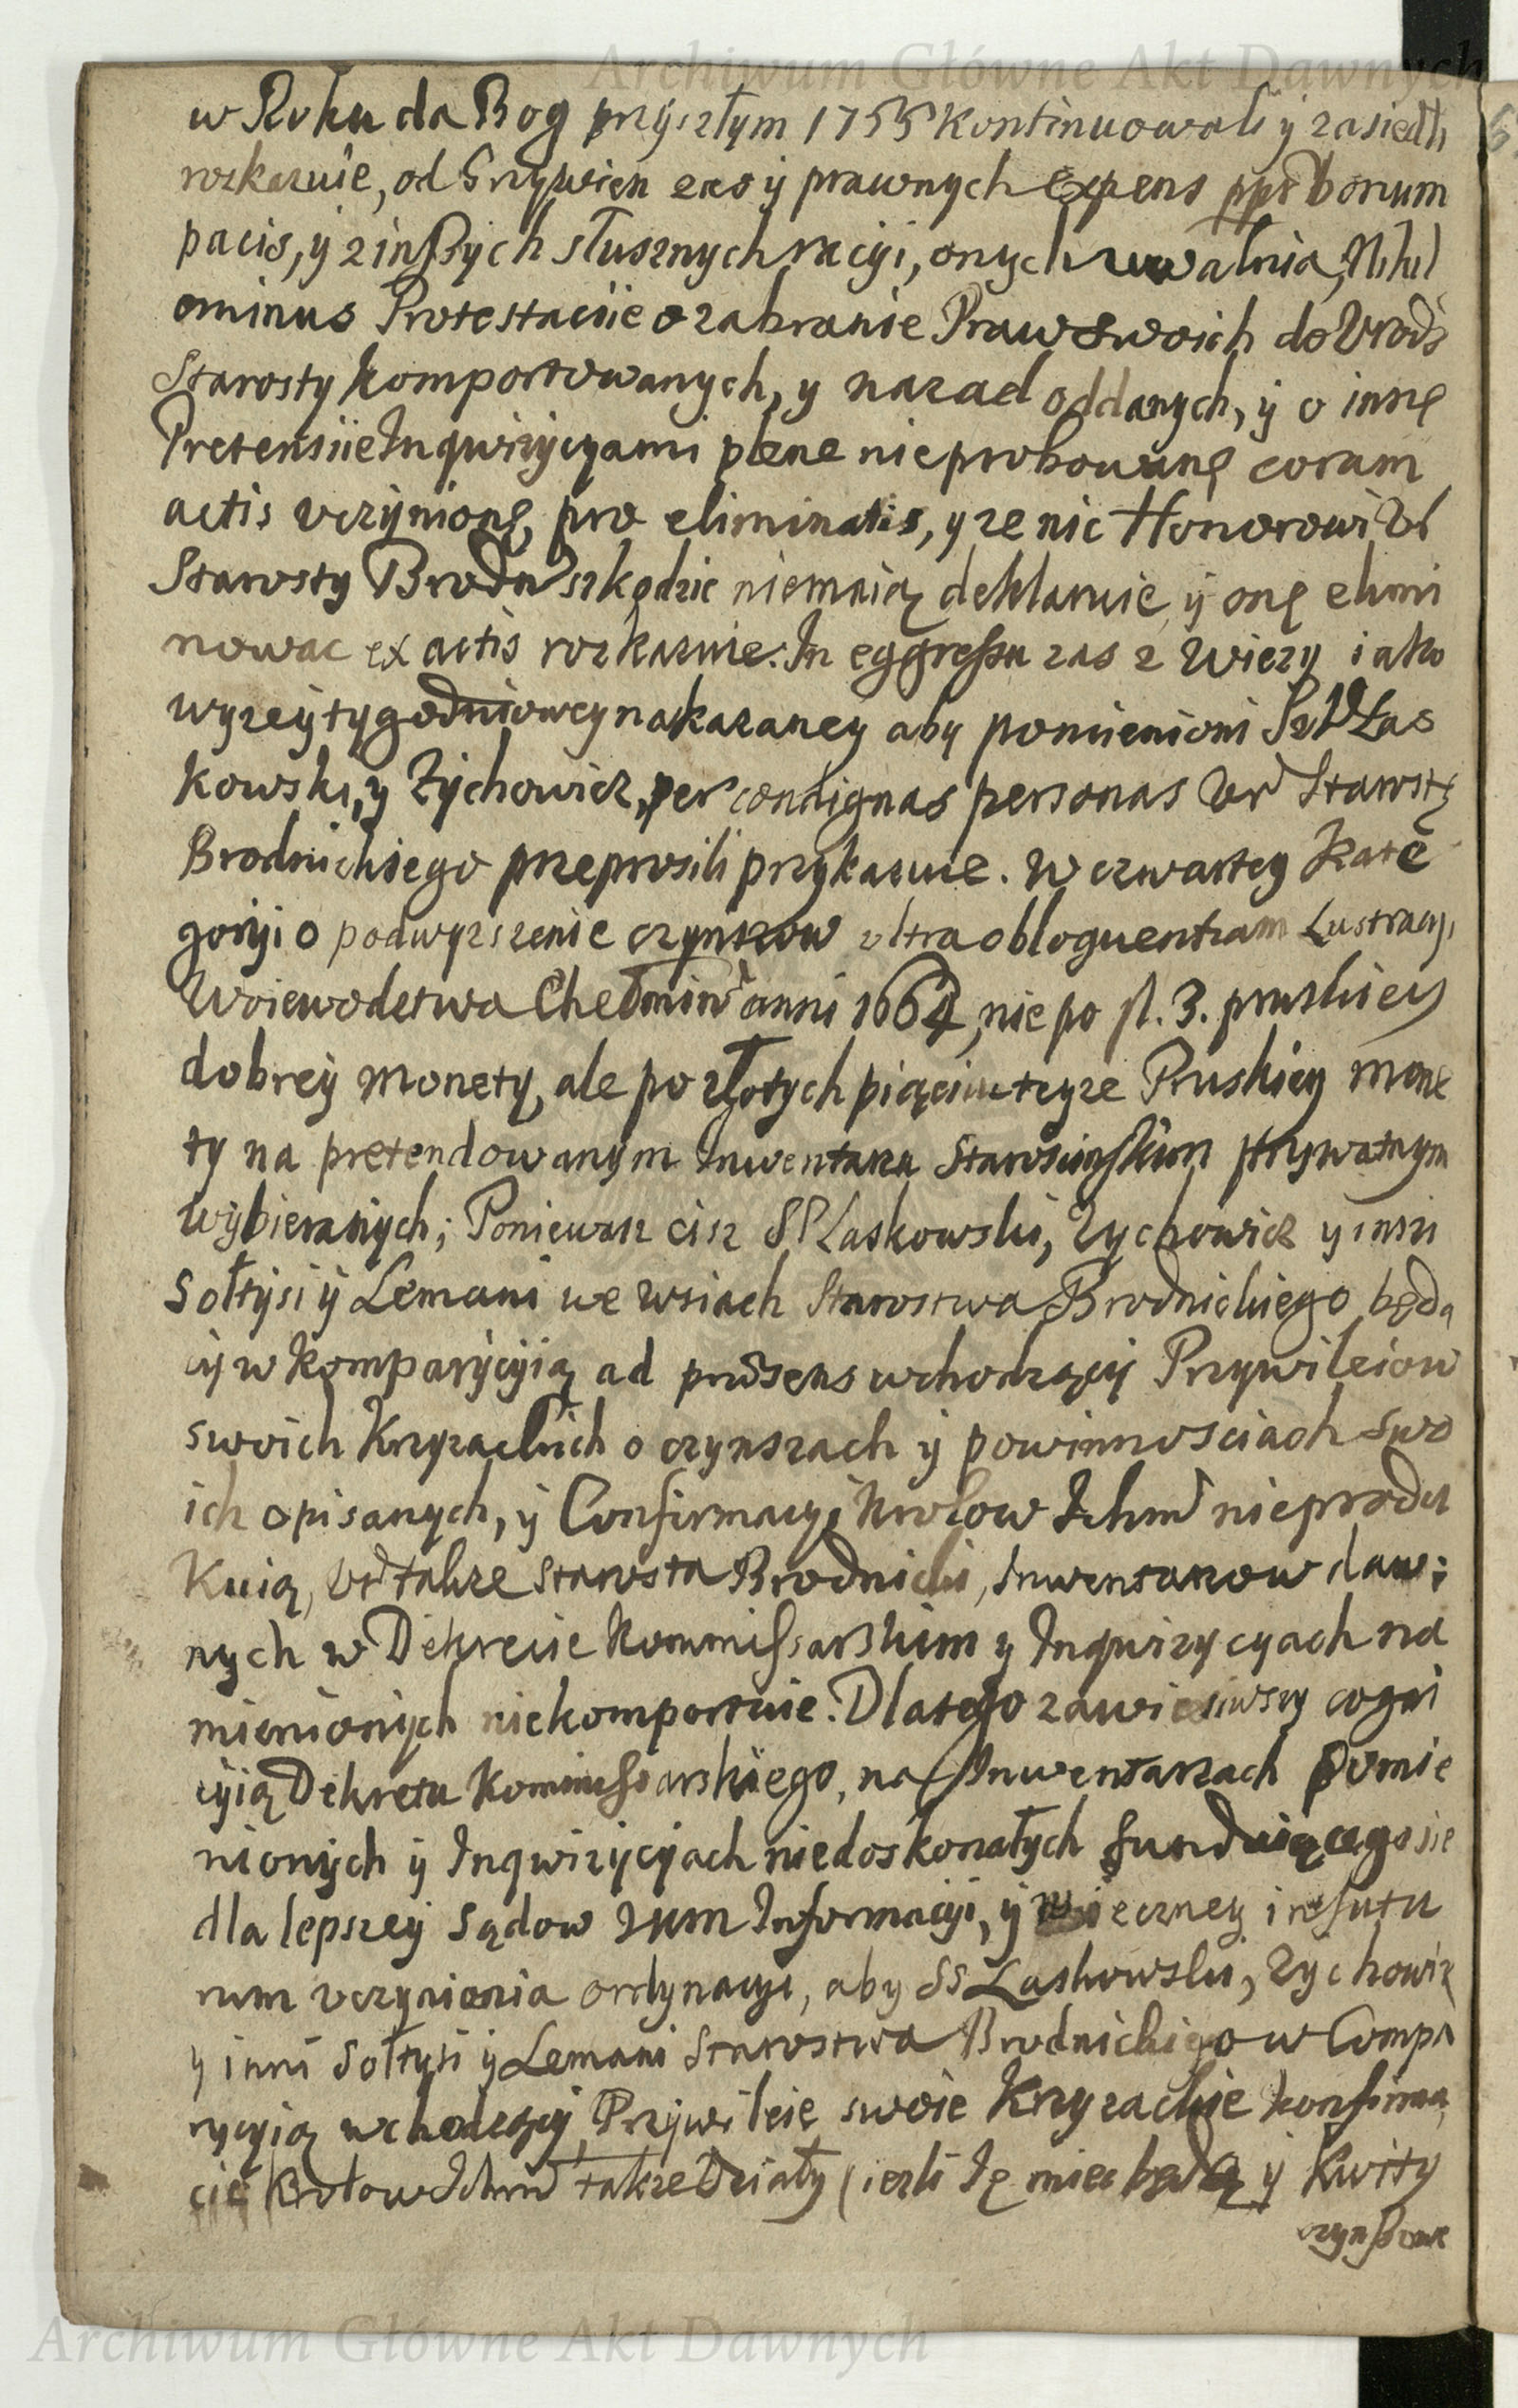 Archiwum Główne Akt Dawnych
w Roku da Bog przyszłym 1755 kontinuowali y zasiedli
rozkazuie, od Grzywien zas y prawnych Expens ppr bonum
pacis, y z inszych słusznych racyi, onych uwalnia, Nihil
ominus Protestacije o zabranie Praw swoich do Urodz
Starosty komportowanych, y nazad oddanych, y o innę
Pretensiie Inqwizycyami plene nieprobowanę coram
actis uczynionę, pro eliminatis, y ze nic Honorowi Ur
Starosty Brodn szkodzic niemaią deklaruie, y onę elimi
nowac ex actis rozkazuie. In eggressu zas z Wiezy iako
wyzey tygodniowey nakazaney aby pomienioni Las
kowski, y Zychowicz, per condignas personas Ur Starostę
Brodnickiego przeprosili przykazuie. W czwartey Kate
goryi o podwyzszenie czynszow ultra obloquentiam Lustracyi
Woiewodstwa Chełmin anni 1664, nie po fl. 3. pruskiey
dobrey monety, ale po złotych pięciu teyze Pruskiey mone
ty na pretendowanym Inwentarzu Starościńskim prywatnym
wybieranych; Poniewasz cisz SS Laskowski, Zychowicz y insi
Sołtysi y Lemani we wsiach Starostwa Brodnickiego będą
cy w komparycyią ad praesens wchodzący Przywileiow
swoich Krzyzackich o czynszach y powinnosciach swo
ich opisanych, y Confirmacyi Krolow Ichm nieprodu
kuią, Ur takze Starosta Brodnicki, Inwentarzow daw:
nych w Dekrecie Kommissarskim y Inqwizycyach na
mienionych niekomportuie. Dlatego zawiesiwszy cogni
cyią Dekretu Kommissarskiego, na Inwentarzach pomie
nionych y Inqwizycyach niedoskonałych funduiącego sie
dla lepszey Sądow Informacyi, y wieczney in futu
rum uczynienia ordynacyi, aby SS Laskowski, Zychowicz
y inni Sołtysi y Lemani Starostwa Brodnickiego w Compa
rycyią wchodzący Przywileie swoie Krzyzackie konfirma
cie Krolow Ichm takze Działy (iezli ię miec będą) y Kwity
czynszowe
Archiwum Główne Akt Dawnych